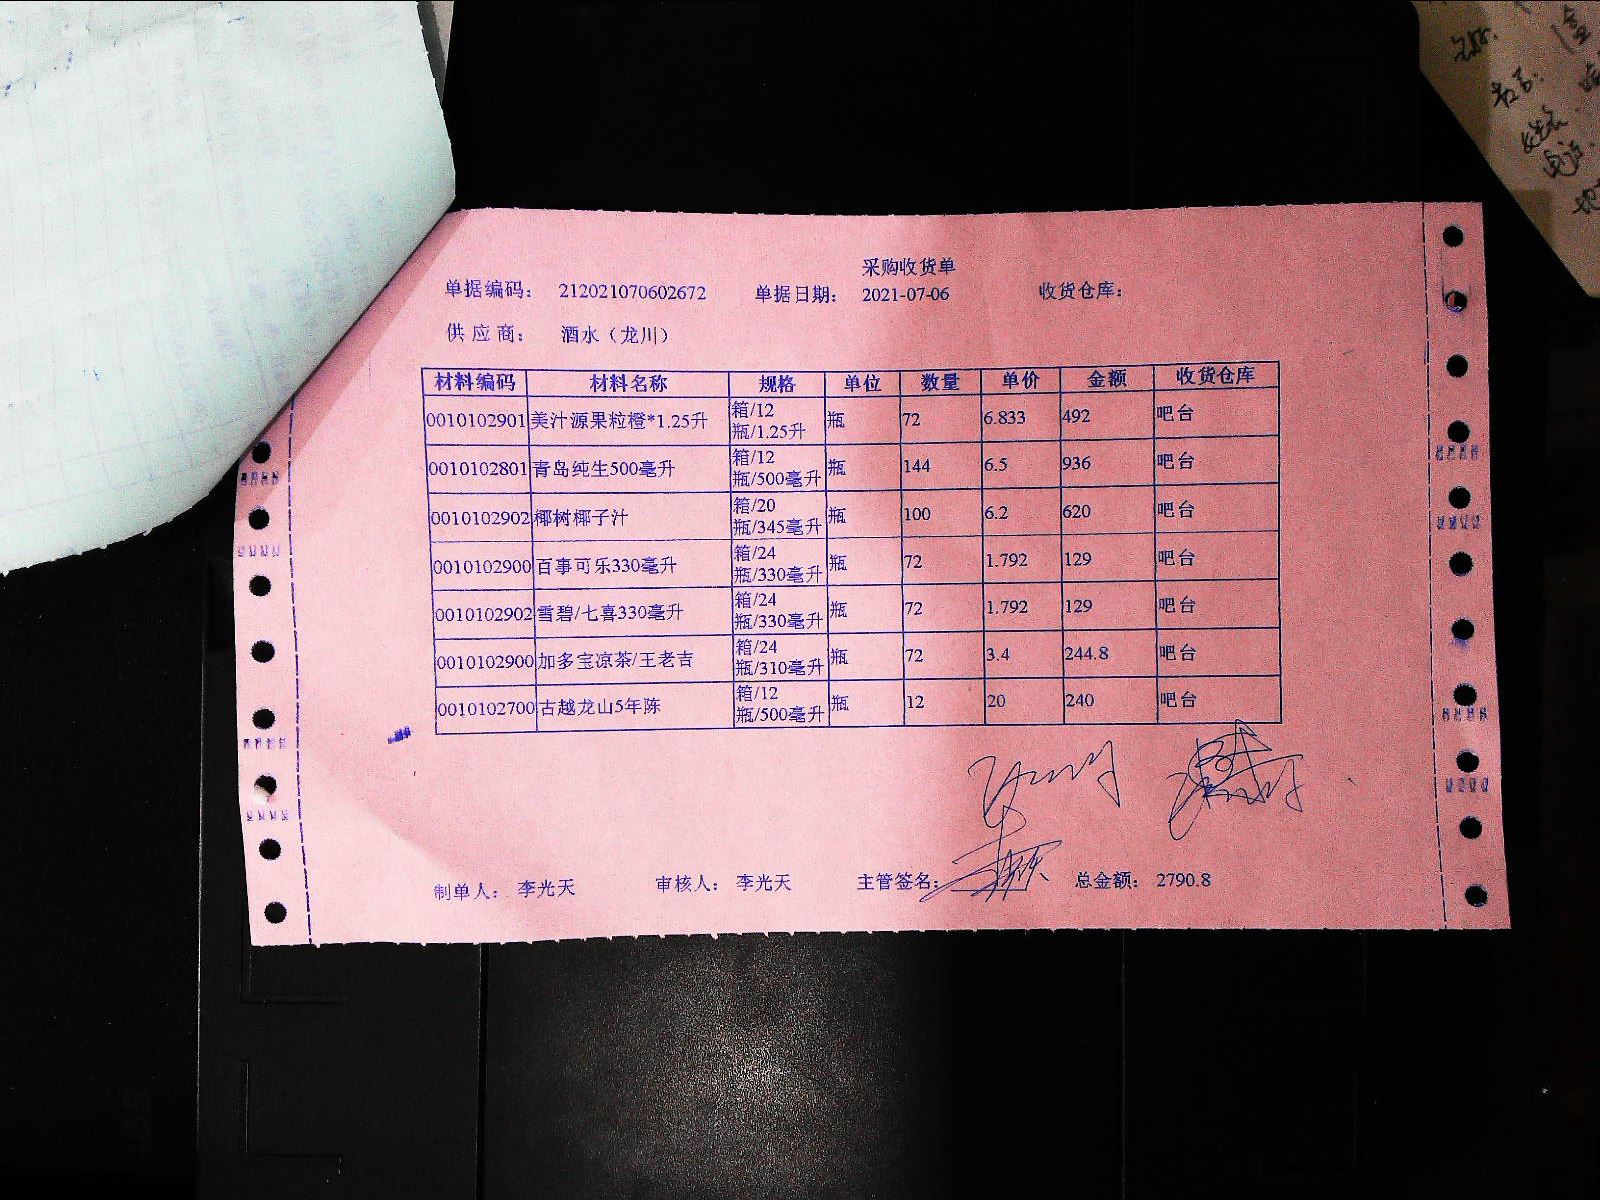 采购收货单
单据编码： 212021070602672 单据日期： 2021-07-06 收货仓库：
供 应 商： 酒水（龙川）
材料编码 材料名称 规格 单位 数量 单价 金额 收货仓库
0010102901 美汁源果粒橙*1.25升 箱/12瓶/1.25升 瓶 72 6.833 492 吧台
0010102801 青岛纯生500毫升 箱/12瓶/500毫升 瓶 144 6.5 936 吧台
0010102902 椰树椰子汁 箱/20瓶/345毫升 瓶 100 6.2 620 吧台
0010102900 百事可乐330毫升 箱/24瓶/330毫升 瓶 72 1.792 129 吧台
0010102902 雪碧/七喜330毫升 箱/24瓶/330毫升 瓶 72 1.792 129 吧台
0010102900 加多宝凉茶/王老吉 箱/24瓶/310毫升 瓶 72 3.4 244.8 吧台
0010102700 古越龙山5年陈 箱/12瓶/500毫升 瓶 12 20 240 吧台
制单人： 李光天 审核人： 李光天 主管签名： 总金额： 2790.8